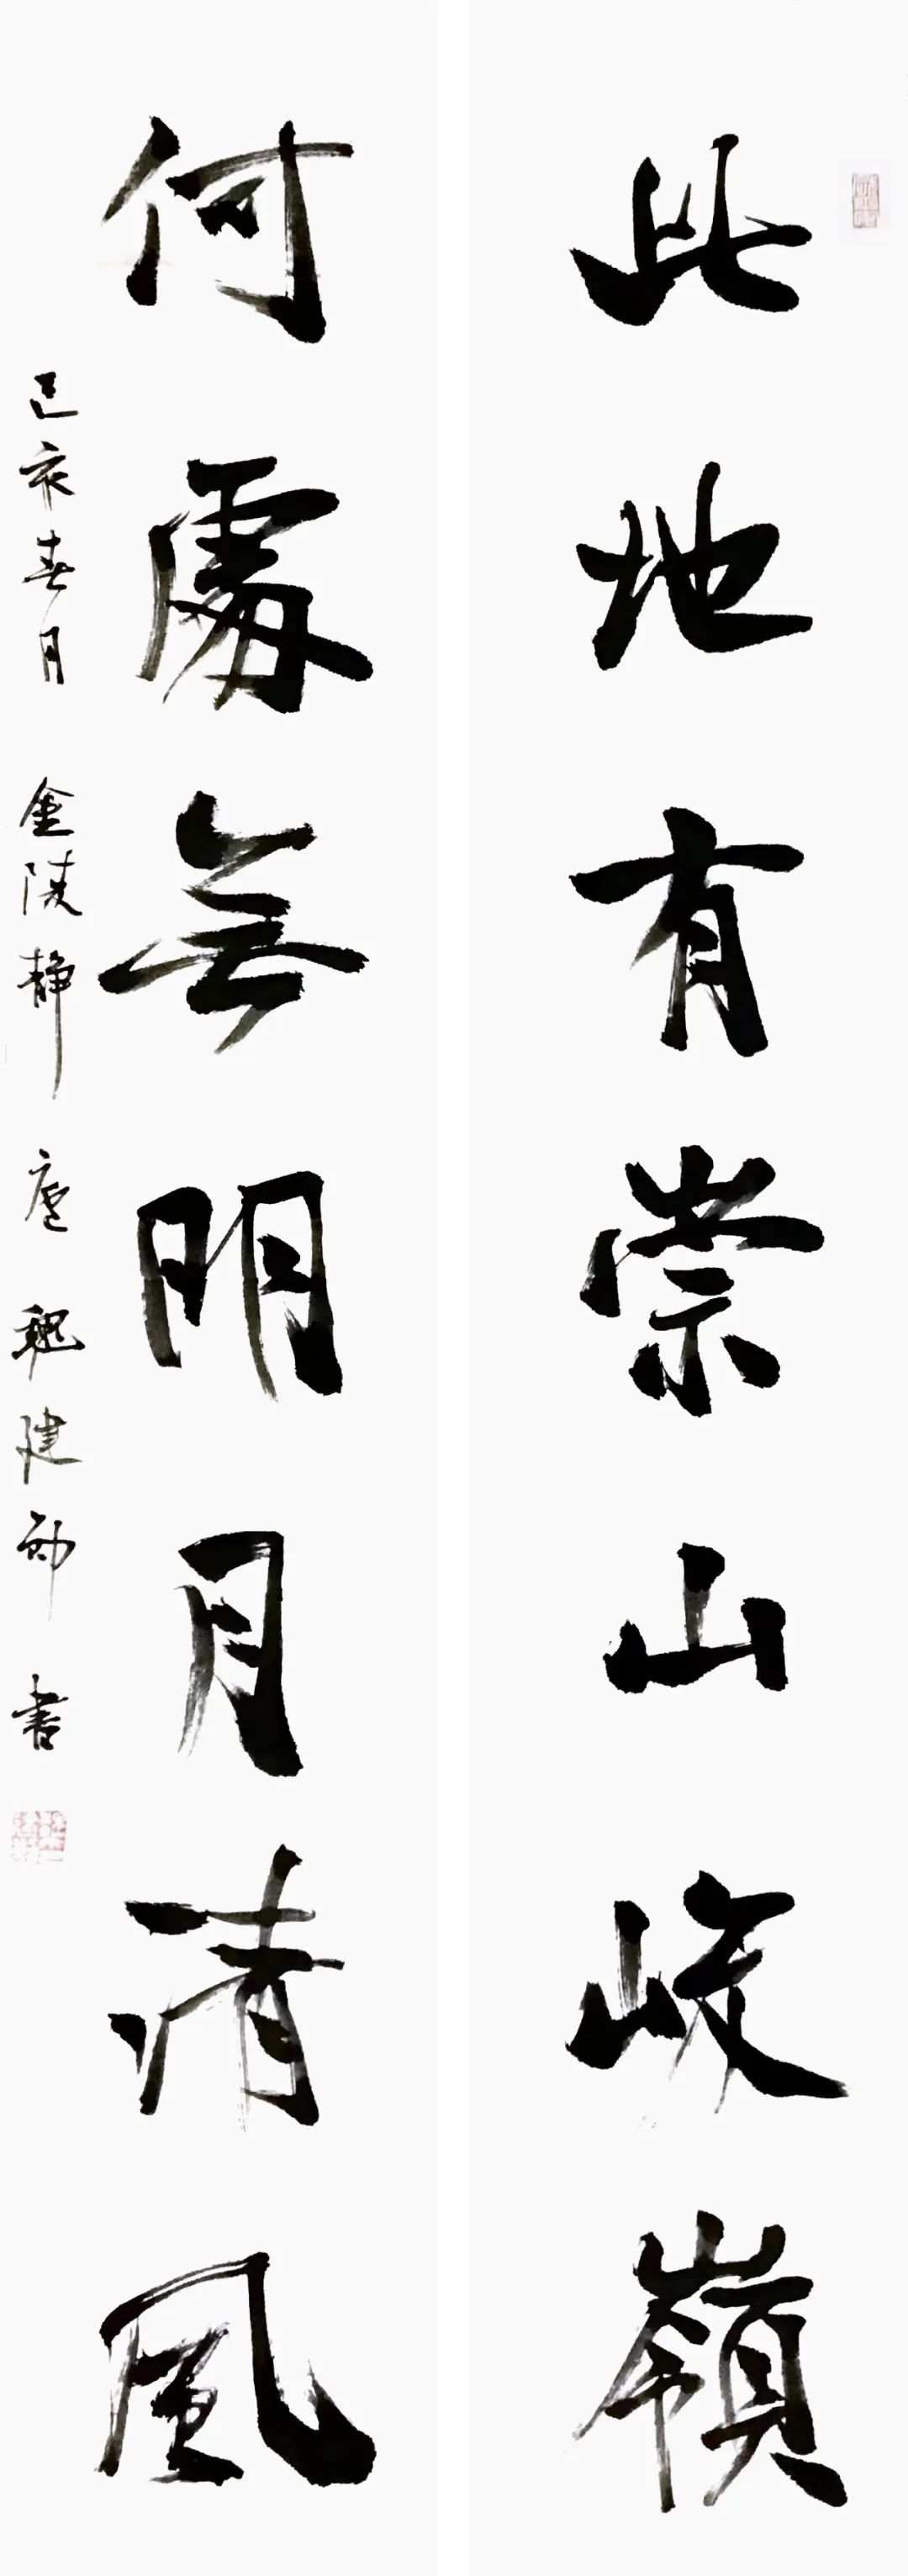 此地有崇山峻嶺
何處無明月清風
己亥春月 金陵静廬 魏建初 書